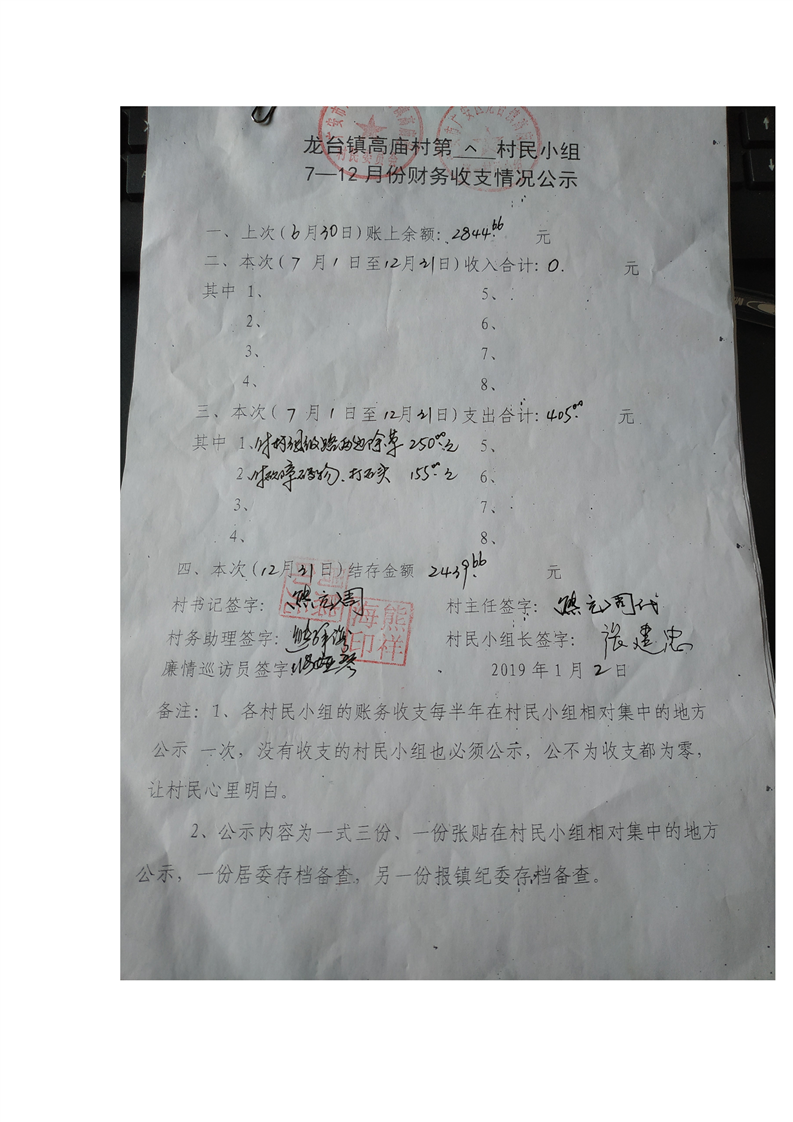 龙台镇高庙村第 八 村民小组
7—12月份财务收支情况公示
一、上次(6月30日)账上余额: 2844.66 元
二、本次(7月1日至12月31日)收入合计: 0. 元
其中 1、 5、
2、 6、
3、 7、
4、 8、
三、本次(7月1日至12月31日)支出合计: 405.00 元
其中 1、付村组公路两边除草 250.00元 5、
2、障碍物、打石头 155.00元 6、
3、 7、
4、 8、
四、本次(12月31日)结存金额 2439.66 元
村书记签字: 熊元周 村主任签字: 熊元周代
村务助理签字: 熊祥海 村民小组长签字: 张建忠
熊祥海印
廉情巡访员签字: 2019年1月2日
备注: 1、各村民小组的账务收支每半年在村民小组相对集中的地方
公示 一次, 没有收支的村民小组也必须公示, 公不为收支都为零,
让村民心里明白。
2、公示内容为一式三份、一份张贴在村民小组相对集中的地方
公示, 一份居委存档备查, 另一份报镇纪委存档备查。